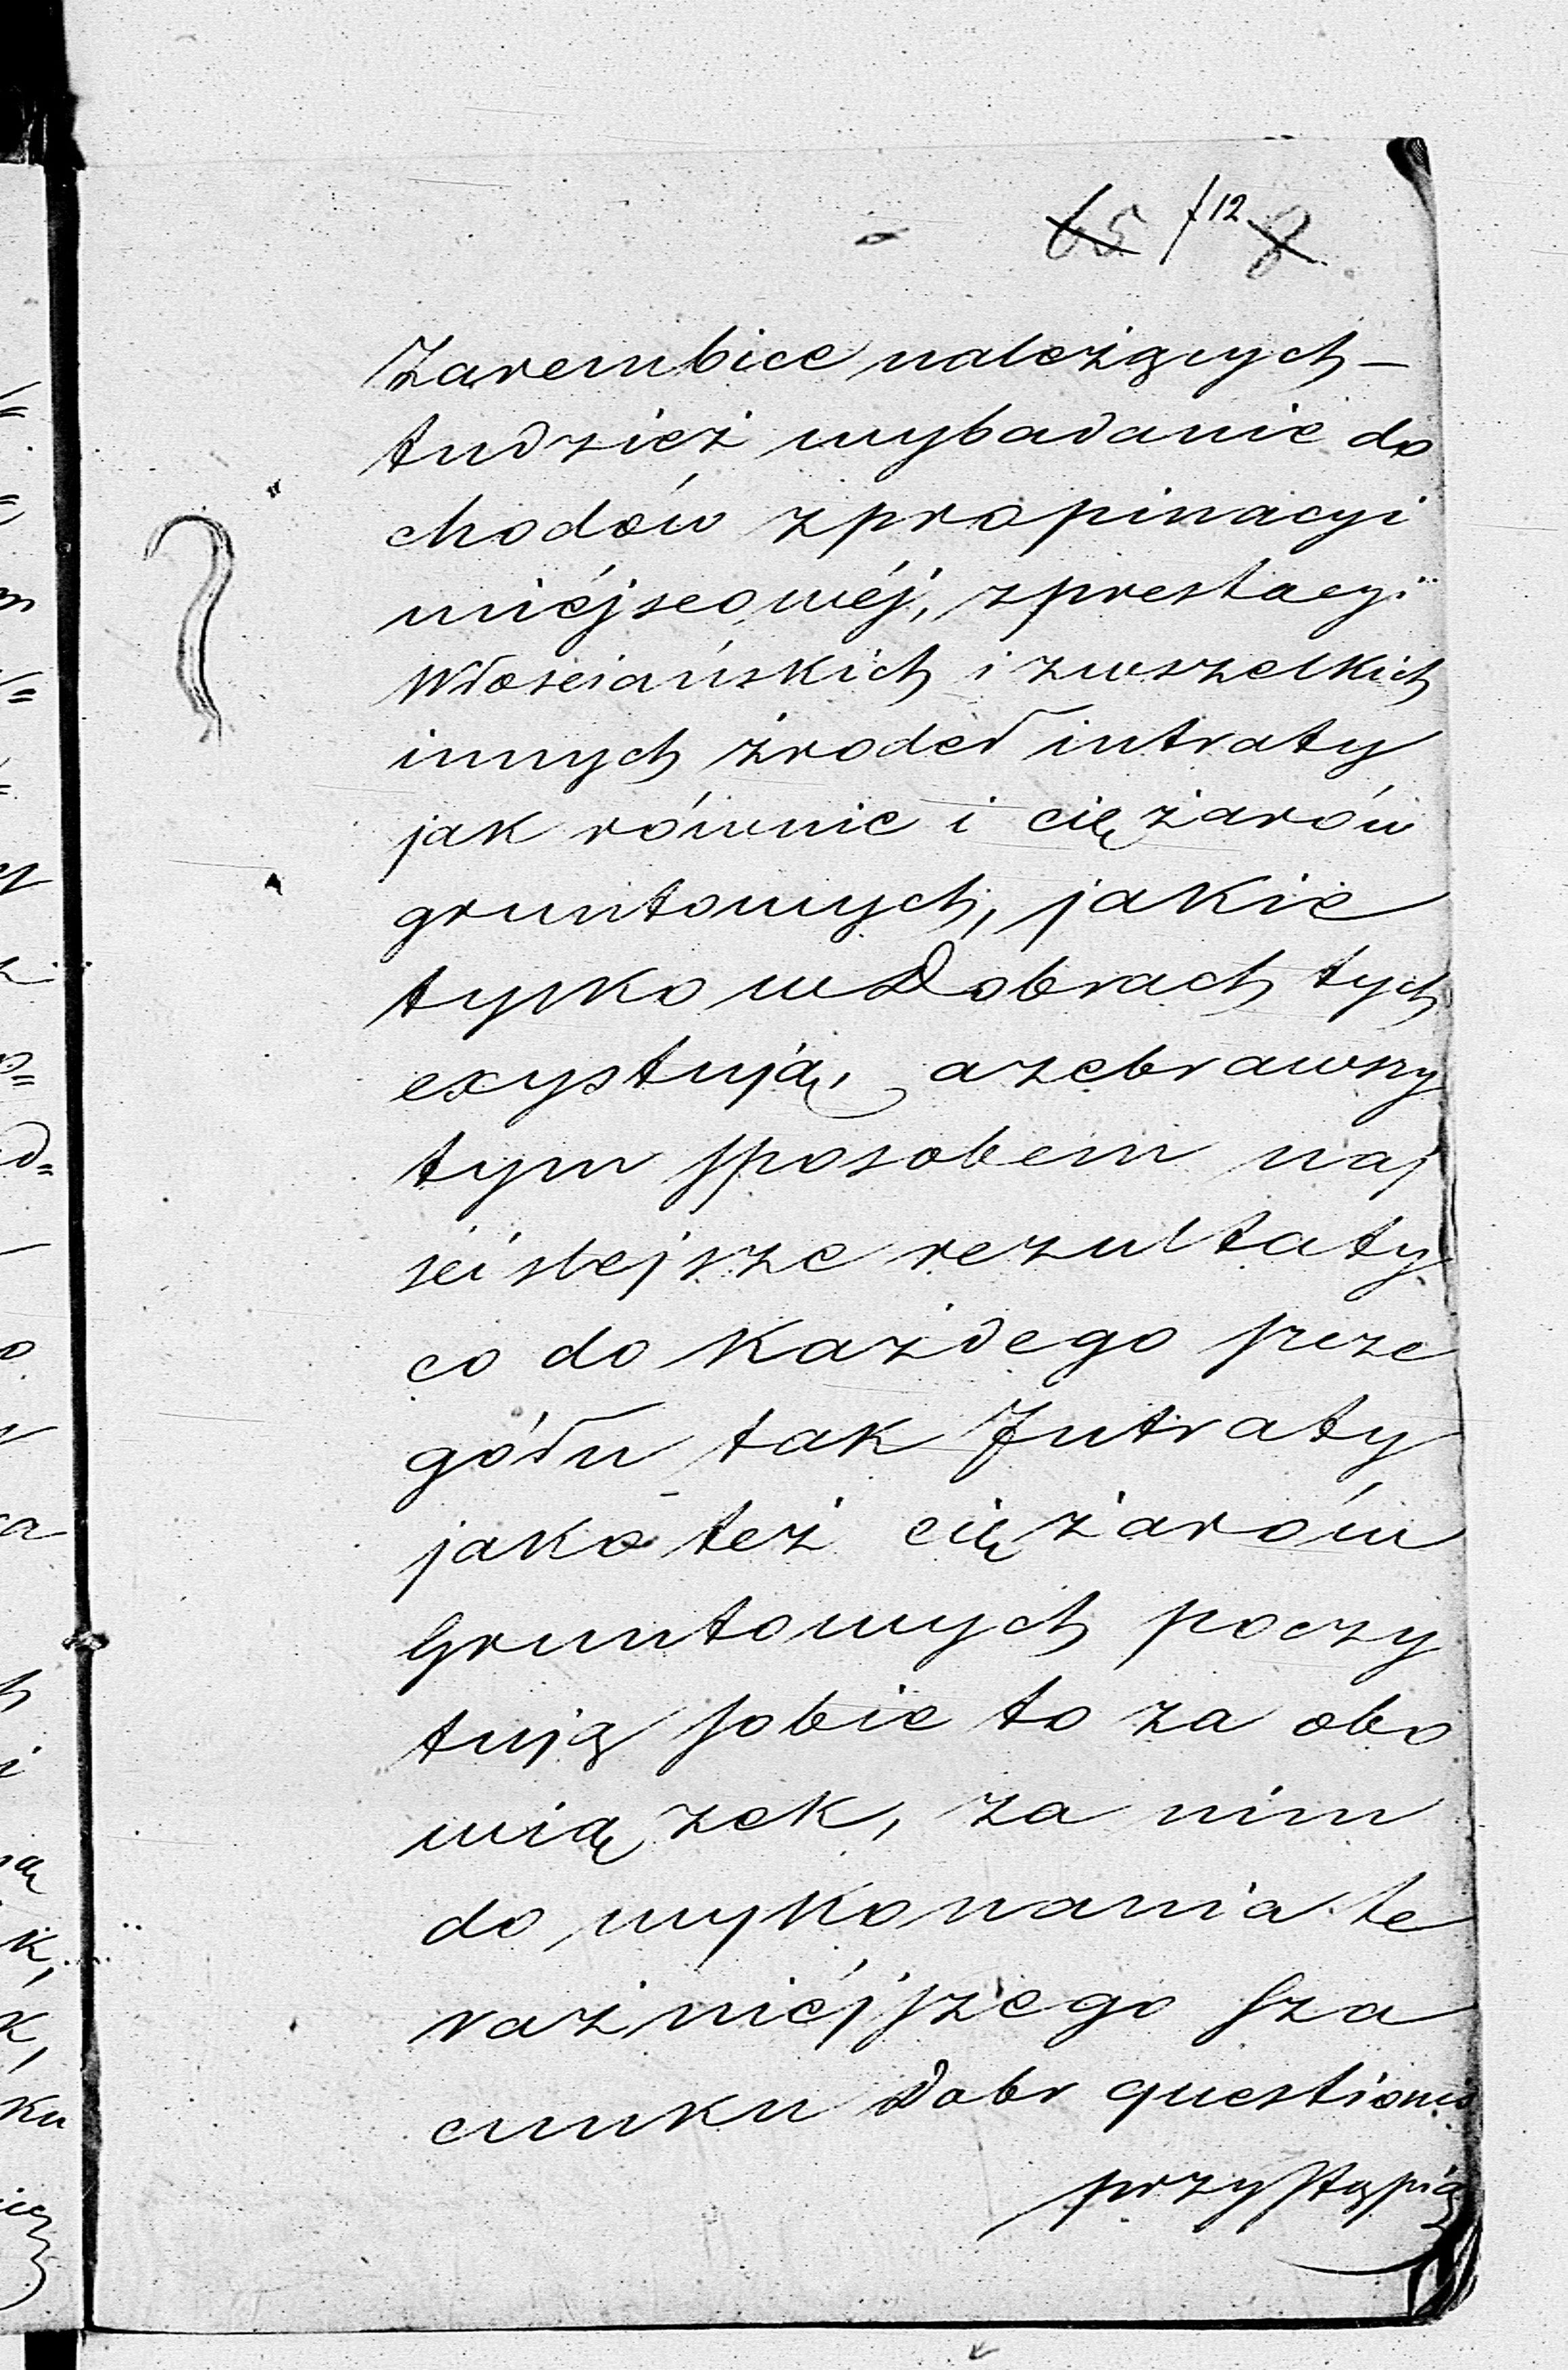 65 f 12 8
Zarembice należących –
tudzież wybadanie do
chodów zpropinacyi
miéjscowéj, zprestacyi
Włościańskich i zwszelkich
innych źrodeł intraty
jak równie i ciężarów
gruntowych, jakie
tylko w Dobrach tych
exystują, azebrawszy
tym sposobem naj
ściślejsze rezultaty
co do każdego szcze
gółu tak Intraty
jako też ciężarów
Gruntowych poczy
tują sobie to za obo
wiązek, za nim
do wykonania te
raźniéjszego sza
cunku Dobr questionis
przystąpią